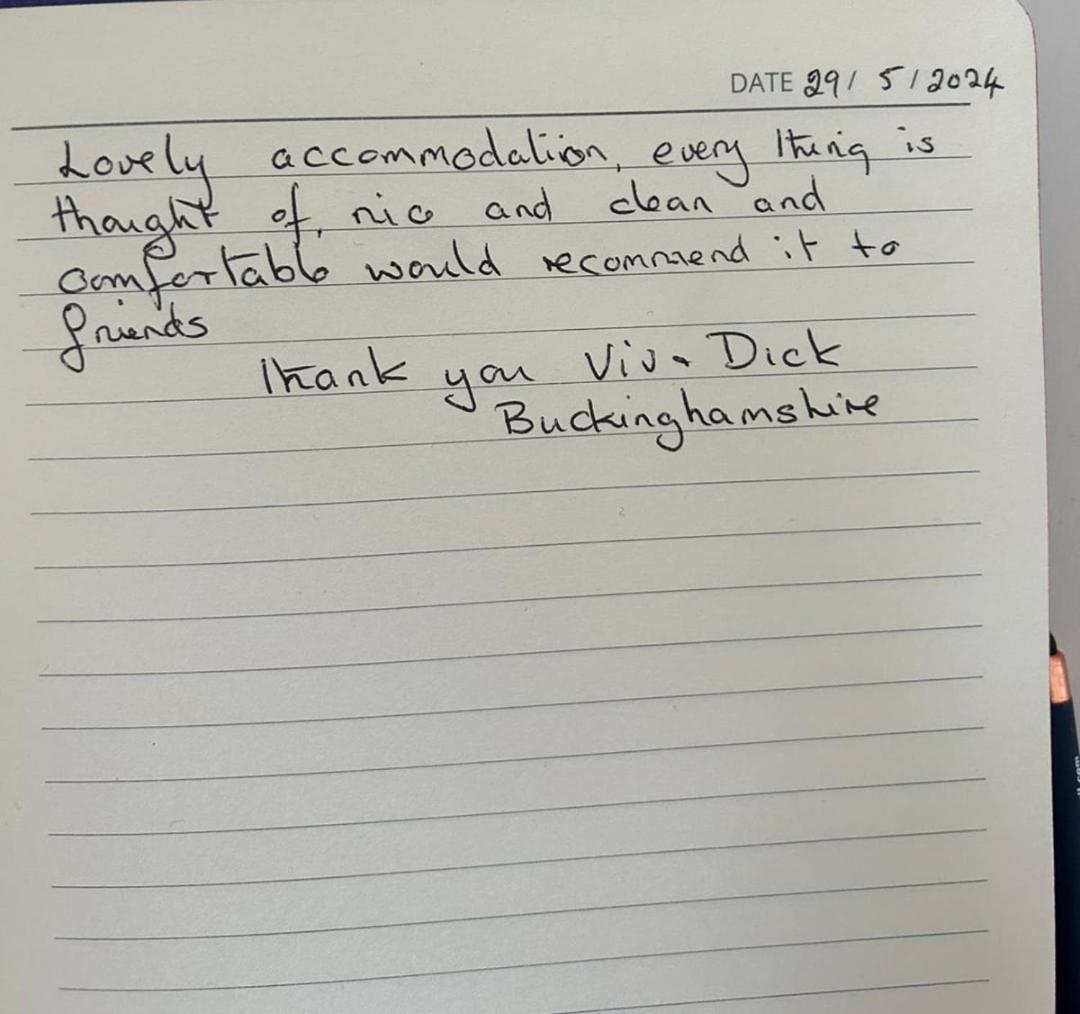 DATE 29/ 5/2024
Lovely accommodation, every thing is
thought of, nice and clean and
comfortable would recommend it to
friends
Thank you Viv & Dick
Buckinghamshire